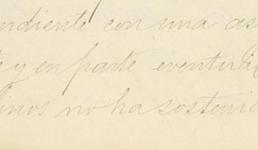 ndiente con una as
y en parte eventua
inos no ha sostenid